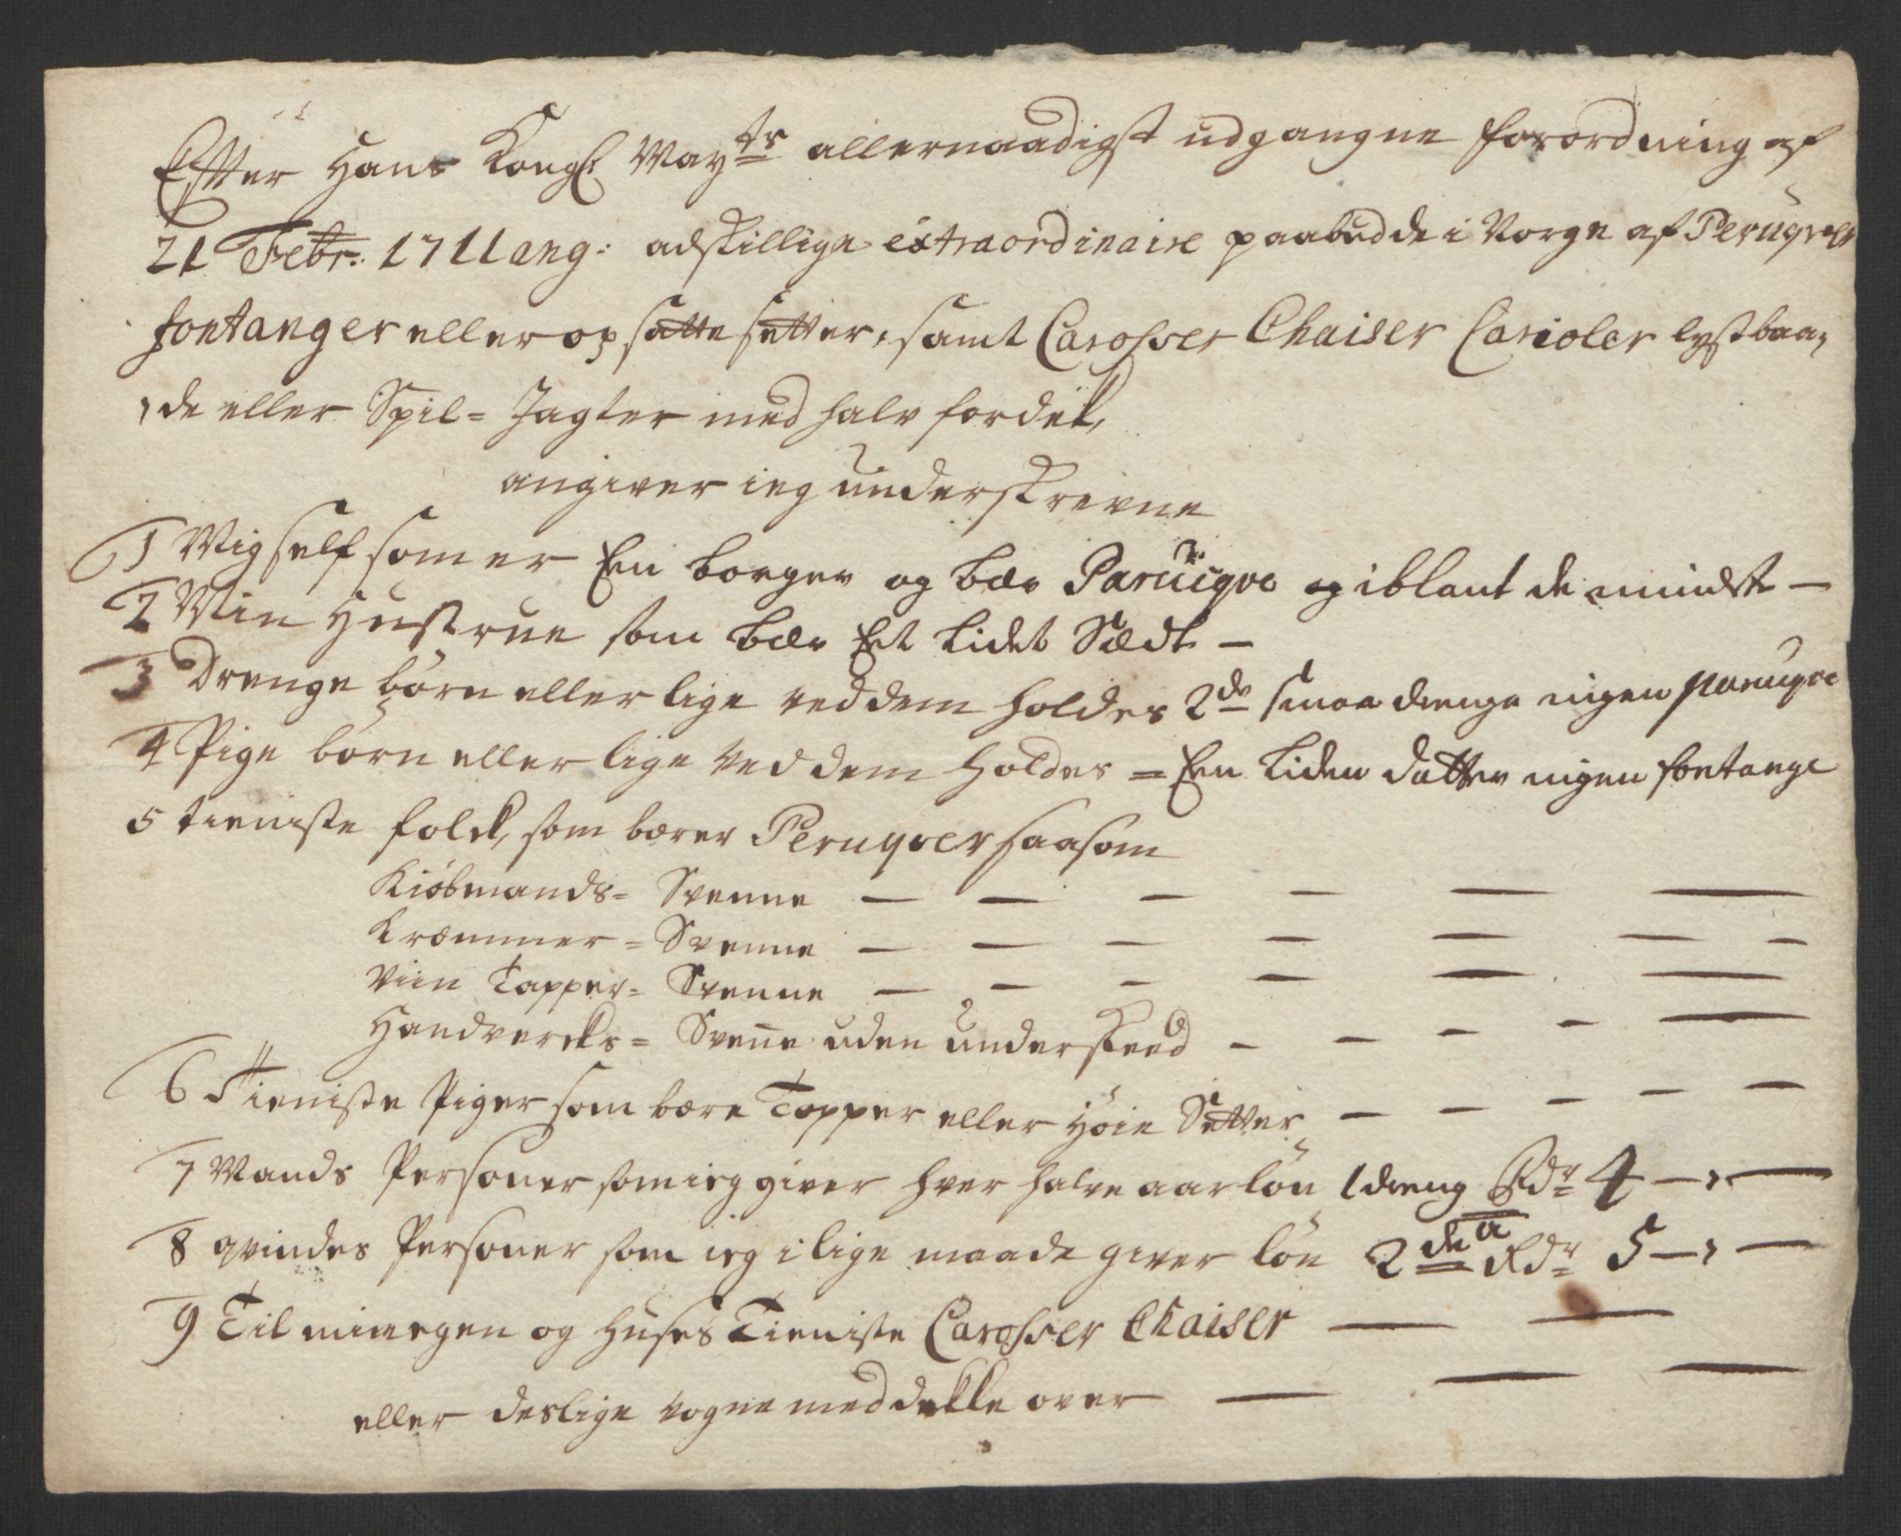 Efter Hans Kongl May:ts allernaadigst udgangne forordning af
21 Febr: 1711 ang: adskillige extraordinaire paabudde i Norge af Peruqver
fontanger eller opsatte setter, samt Carosser Chaiser Carioler lystbaa,
,de eller Spil= Jagter med halv fordek,
angiver ieg underskrevne
1 Mig self som er En borger og bær Parucqve og iblant de mindste —
2 Min Hustrue som bær Et lidet Sædt —
3 Drenge børn eller lige ved dem holdes 2de smaa drenge ingen paruqve
4 Pige børn eller lige ved dem holdes = En liden datter ingen fontange
5 tieniste folck, som bærer Peruqver saasom
Kiøbmands= Svenne — — — — — —
Kræmmer= Svenne — — — — — — —
Viin Tapper= Svenne — — — — — —
Handvercks= Svenne uden underskeed — — — — —
6 Tieniste Piger som bære Topper eller høie Setter — — — — —
7 Mands Personer som ieg giver hver halve aar løn 1 dreng Rdr 4 — , —
8 qvindes Personer som ieg i lige maade giver løn 2de a Rdr 5 — , —
9 Til min egen og huses Tieniste Carosser Chaiser — —
eller deslige vogne med dekke over — — —